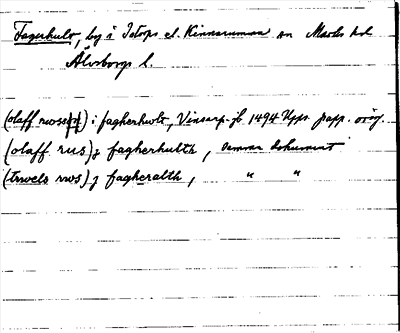 Fagerhult, by i Istorps el. Kinnarumma sn Marks hd
Älvsborgs l.
(olaff rwosson) i fagherhwlt, Vinsarp-jb 1494 Upps. papp. orig.
(olaff rus) j fagherhulth, samma dokument
(trwels rws) j fagheralth, " "